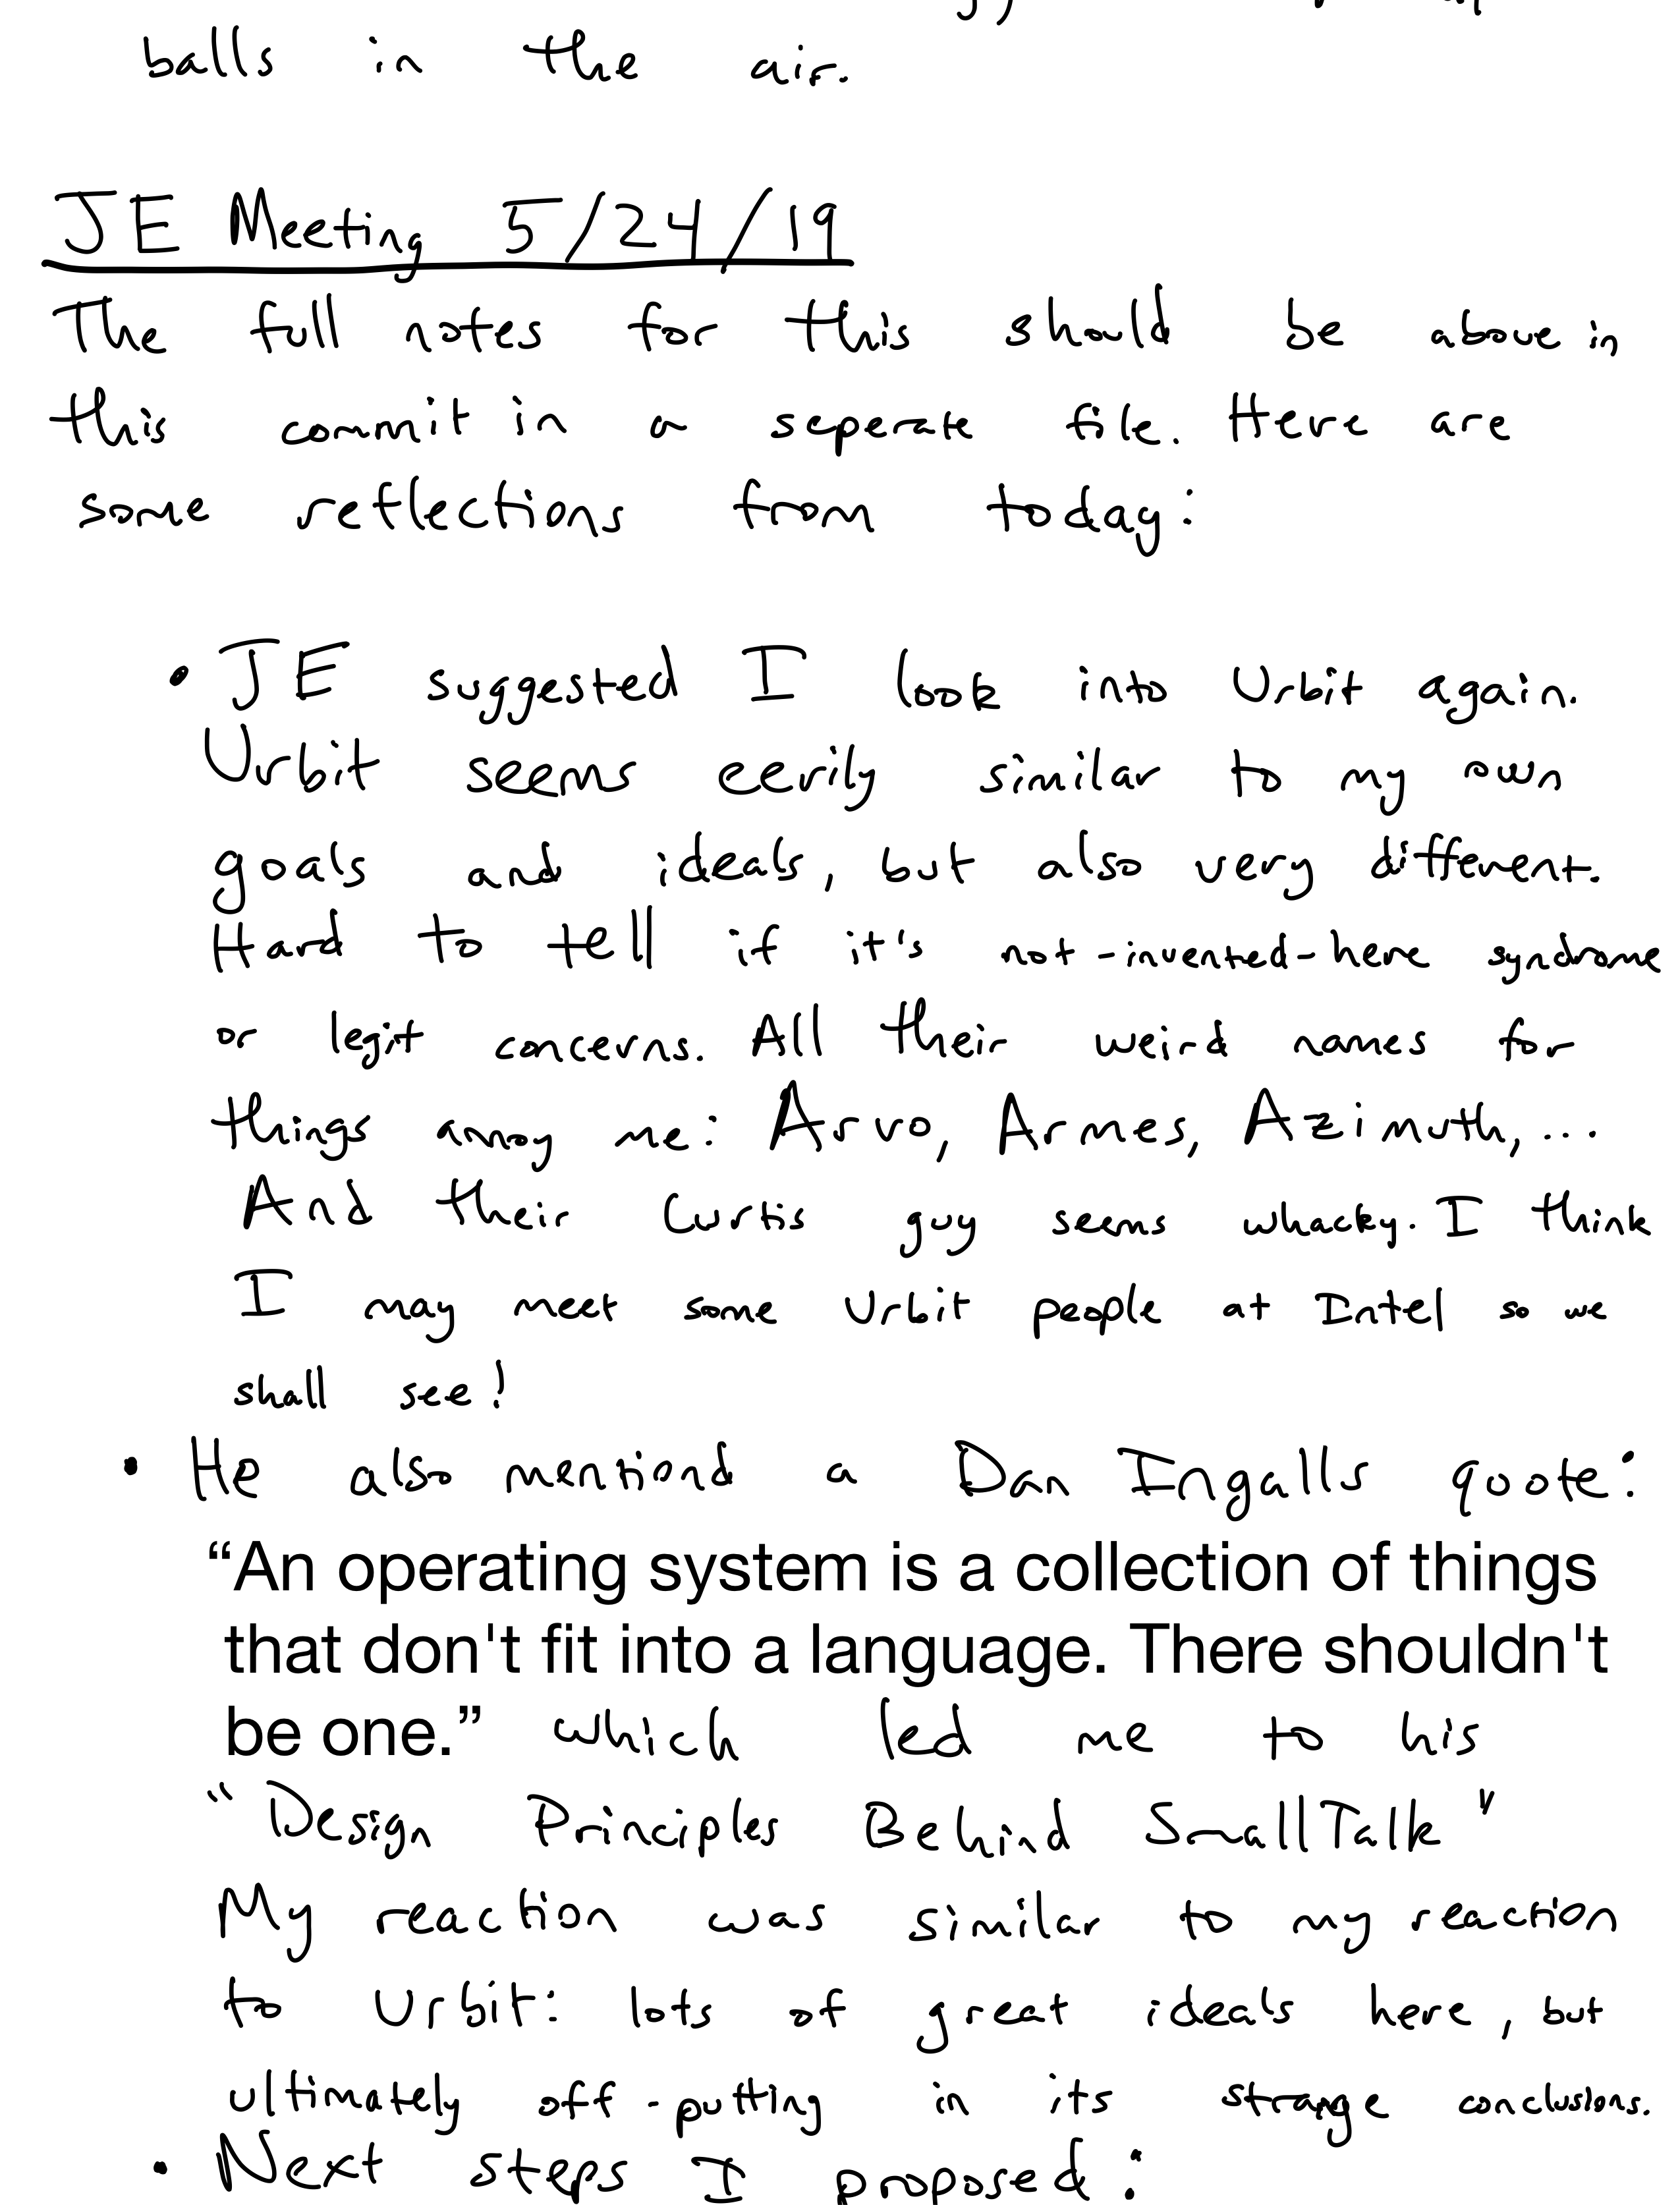 balls in the air.
JE Meeting 5/24/19
The full notes for this should be above in
this commit in a seperate file. Here are
some reflections from today:
• JE suggested I look into Urbit again.
Urbit seems eerily similar to my own
goals and ideals, but also very different.
Hard to tell if it's not-invented-here syndrome
or legit concerns. All their weird names for
things annoy me: Arvo, Armes, Azimuth, ...
And their Curtis guy seems whacky. I think
I may meet some Urbit people at Intel so we
shall see!
• He also mentiond a Dan Ingalls quote:
“An operating system is a collection of things
that don't fit into a language. There shouldn't
be one.” which led me to his
"Design Principles Behind SmallTalk"
My reaction was similar to my reaction
to Urbit: lots of great ideals here, but
ultimately off-putting in its strange conclusions.
• Next steps I proposed: